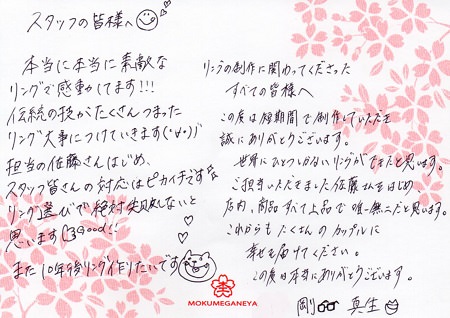 スタッフの皆様へ
本当に本当に素敵な
リングで感動してます!!!
伝統の技がたくさんつまった
リング大事につけていきます(*'∀'*)ﾉﾞ
担当の佐藤さんはじめ、
スタッフ皆さんの対応はピカイチです
リング選びで絶対失敗しないと
思います Good!!
また10年後リング作りたいです
リングの制作に関わってくださった
すべての皆様へ
この度は短期間で制作していただき
誠にありがとうございます。
世界にひとつしかないリングができたと思います。
ご担当いただきました佐藤さんをはじめ、
店内、商品すべて上品で唯一無二だと思います。
これからもたくさんのカップルに
幸せを届けてください。
この度は本当にありがとうございます。
剛 真生
MOKUMEGANEYA